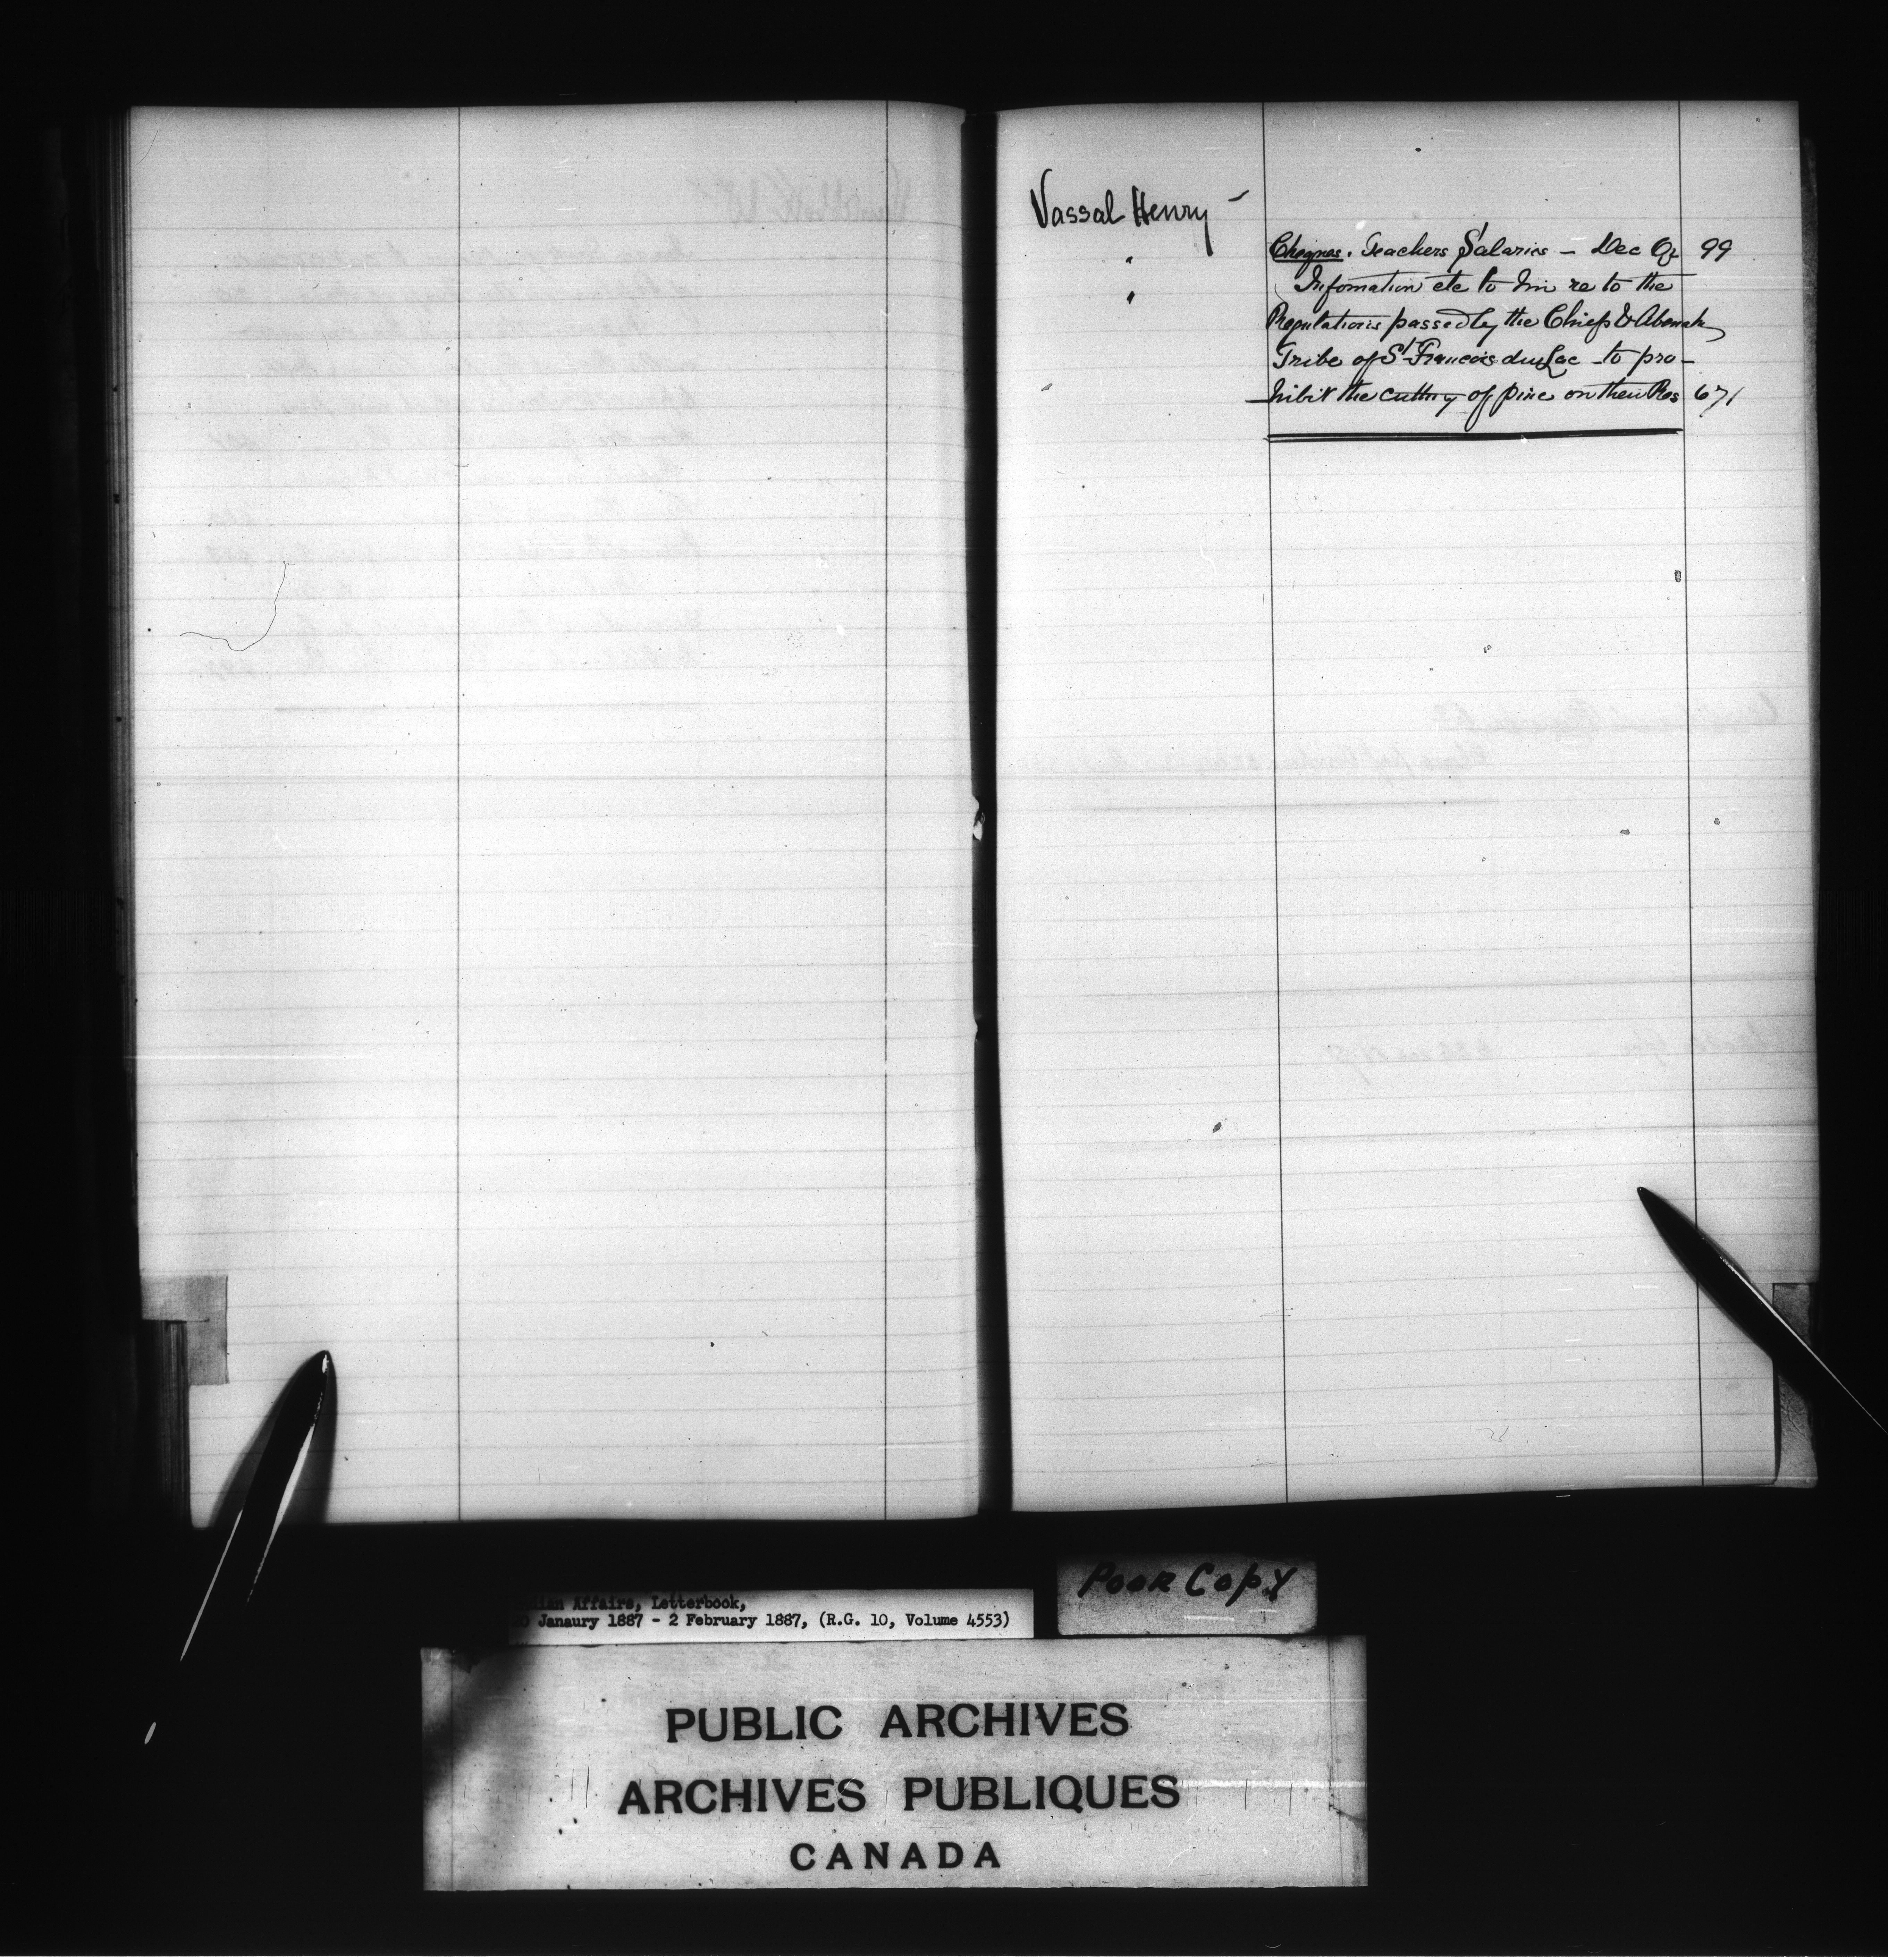 Vassal Henry -
" Cheques. Teachers Salaries - Dec Qr 99
" Infomation etc to him re to the
Regulations passed by the Chiefs & Abenak
Tribe of St Francois du Lac - to pro-
hibit the cutting of pine on their Res 671
Poor Copy
dian Affairs, Letterbook,
0 Janaury 1887 - 2 February 1887, (R.G. 10, Volume 4553)
PUBLIC ARCHIVES
ARCHIVES PUBLIQUES
CANADA